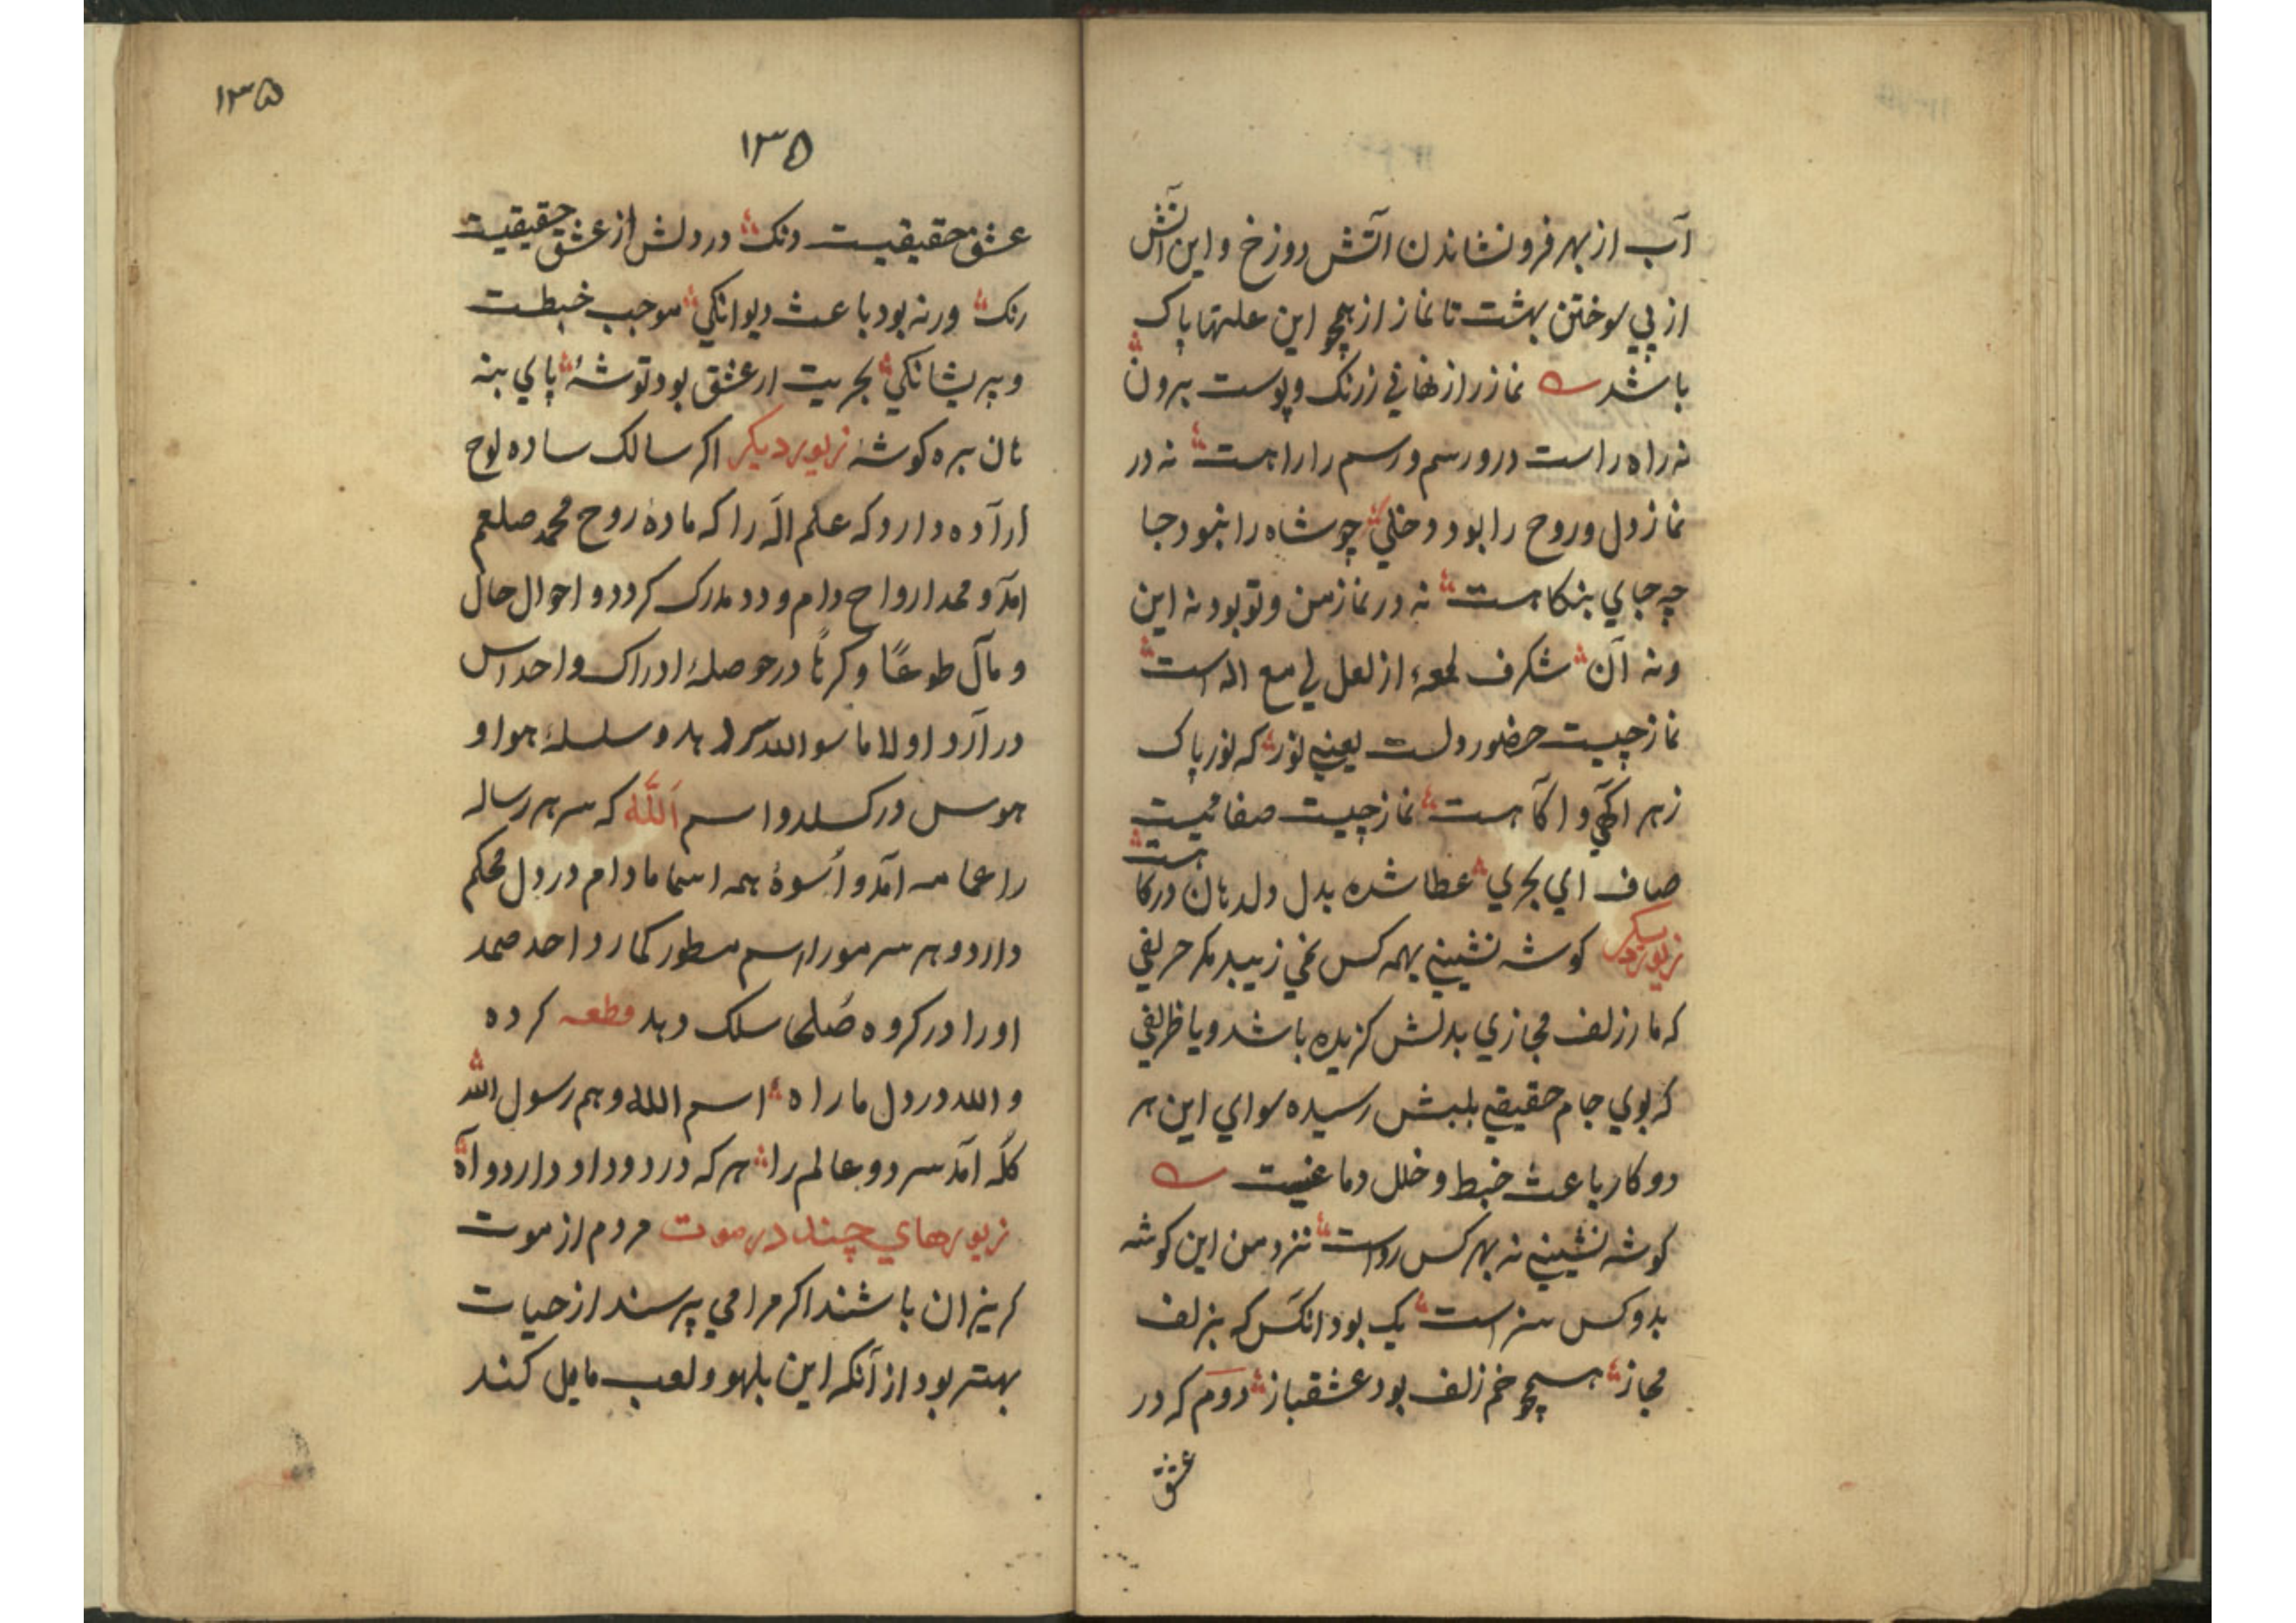 آب از بهر فرو نشاندن آتش دوزخ و این آتش
از پي سوختن بهشت تا نماز از همچو این علتها پاک
باشد نماز راز نهاني ز رنک و پوست برون
نه راه راست درو رسم و رسم را راهست نه در
نماز دل و روح را بود دخلي چو شاه را نبود جا
چه جاي بنکاهست نه در نماز من و تو بود نه این
و نه آن شکرف لمعهٔ از لعل لي مع اله است
نماز چیست حضور دلت یعني نور که نور پاک
ز هر آکهي و اکاهست نماز چیست صفا نیت
صاف اي بحري عطا شده بدل ولد هان درکا هست
زیور دیکر کوشه نشیني بهمه کس نمي زیبد مکر حریفي
که مار زلف مجازي بدلش کزیده باشد و یا ظریفي
که بوي جام حقیقي بلبش رسیده سواي این هر
دو کار باعث خبط و خلل دماغیست
کوشه نشیني نه بهر کس رواست نزد من این کوشه
بدو کس سزاست یک بود انکس که بزلف
مجاز همچو خم زلف بود عشقباز دوم که در
عشق
۱۳۵
۱۳۵
عشق حقیقیست دنک در دلش از عشق حقیقیت
رنک ورنه بود باعث دیوانکي موجب خبطت
و پریشانکي بحریت ار عشق بود توشهٔ پاي بنه
نان ببره کوشهٔ زیور دیکر اکر سالک ساده لوح
اراده دارد که علم اله را که مادهٔ روح محمد صلعم
امد و محمد ارواح دام و دد مدرک کردد و احوال حال
و مآل طوعًا و کرهًا در حوصلهٔ ادراک و احداس
در آرد اولا ما سوا الله بدو سلسلهٔ هوا و
هوس در کسلد و اسم الله که سر هر رساله
را عمامه آمد و اسوهٔ همه اسما مادام در دل محکم
دارد و هر سر مو را اسم مسطور کمارد احد صمد
او را در کروه صلحا سلک دهد قطعه کرده
و الله در دل ما راه اسم الله و هم رسول الله
کله آمد سر دو عالم را هر که درد و داد دارد و آه
زیورهاي چند در موت مردم از موت
کریزان باشند اکر مرا مي پرسند از حیات
بهتر بود از آنکه این بلهو و لعب مایل کند